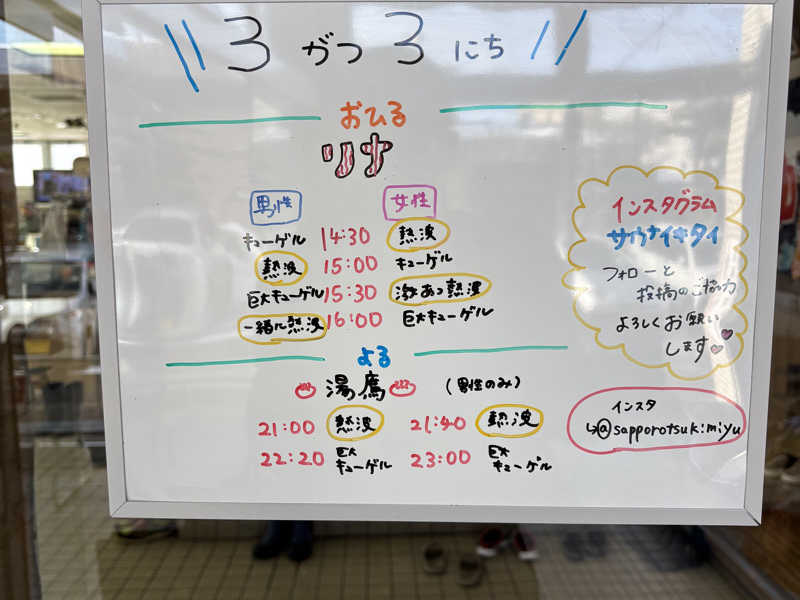 \\ 3 がつ 3 にち //
おひる
リナ
男性 女性
キューゲル 14:30 熱波
熱波 15:00 キューゲル
巨大キューゲル 15:30 激あつ熱波
一緒に熱波 16:00 巨大キューゲル
よる
♨ 湯鷹 ♨ (男性のみ)
21:00 熱波 21:40 熱波
22:20 巨大キューゲル 23:00 巨大キューゲル
インスタグラム
サウナイキタイ
フォローと
投稿のご協力
よろしくお願い
します
インスタ
↳@sapporotsukimiyu